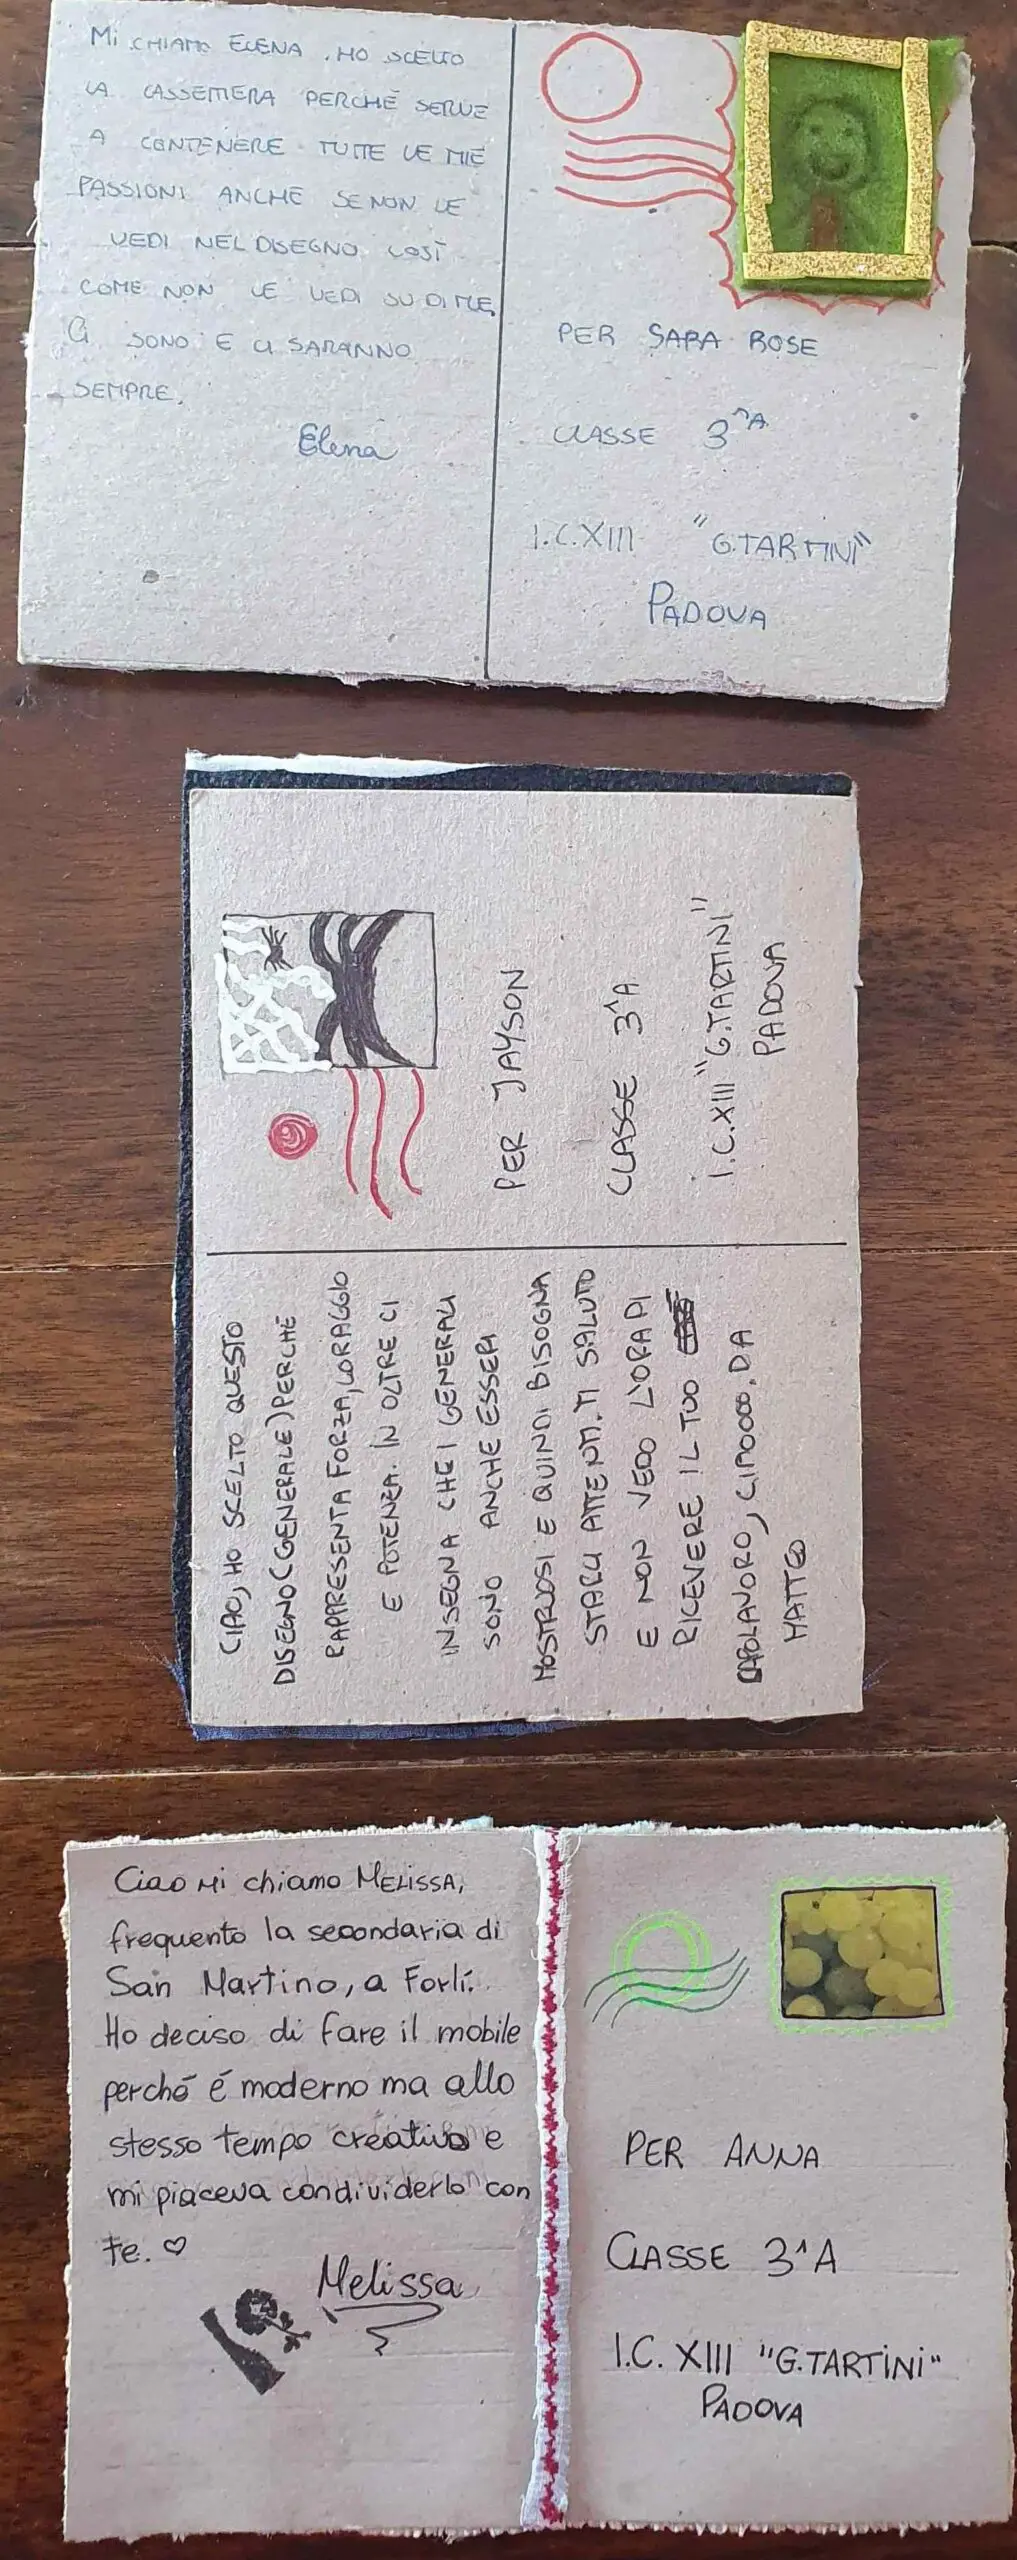 MI CHIAMO ELENA, HO SCELTO
LA CASSETTIERA PERCHÉ SERVE
A CONTENERE TUTTE LE MIE
PASSIONI ANCHE SE NON LE
VEDI NEL DISEGNO COSÌ
COME NON LE VEDI SU DI ME.
CI SONO E CI SARANNO
SEMPRE.
Elena
PER SARA ROSE
CLASSE 3^A
I.C.XIII "G.TARTINI"
PADOVA
CIAO, HO SCELTO QUESTO
DISEGNO (GENERALE) PERCHÉ
RAPPRESENTA FORZA, CORAGGIO
E POTENZA. IN OLTRE CI
INSEGNA CHE I GENERALI
SONO ANCHE ESSERI
MOSTRUOSI E QUINDI BISOGNA
STARCI ATTENTI. TI SALUTO
E NON VEDO L'ORA DI
RICEVERE IL TUO
CAPOLAVORO, CIAOOOO. DA
MATTEO
PER JAYSON
CLASSE 3^A
I.C.XIII "G.TARTINI"
PADOVA
Ciao mi chiamo MELISSA,
frequento la secondaria di
San Martino, a Forlí.
Ho deciso di fare il mobile
perché é moderno ma allo
stesso tempo creativo e
mi piaceva condividerlo con
te. ♡
Melissa
PER ANNA
CLASSE 3^A
I.C. XIII "G.TARTINI"
PADOVA